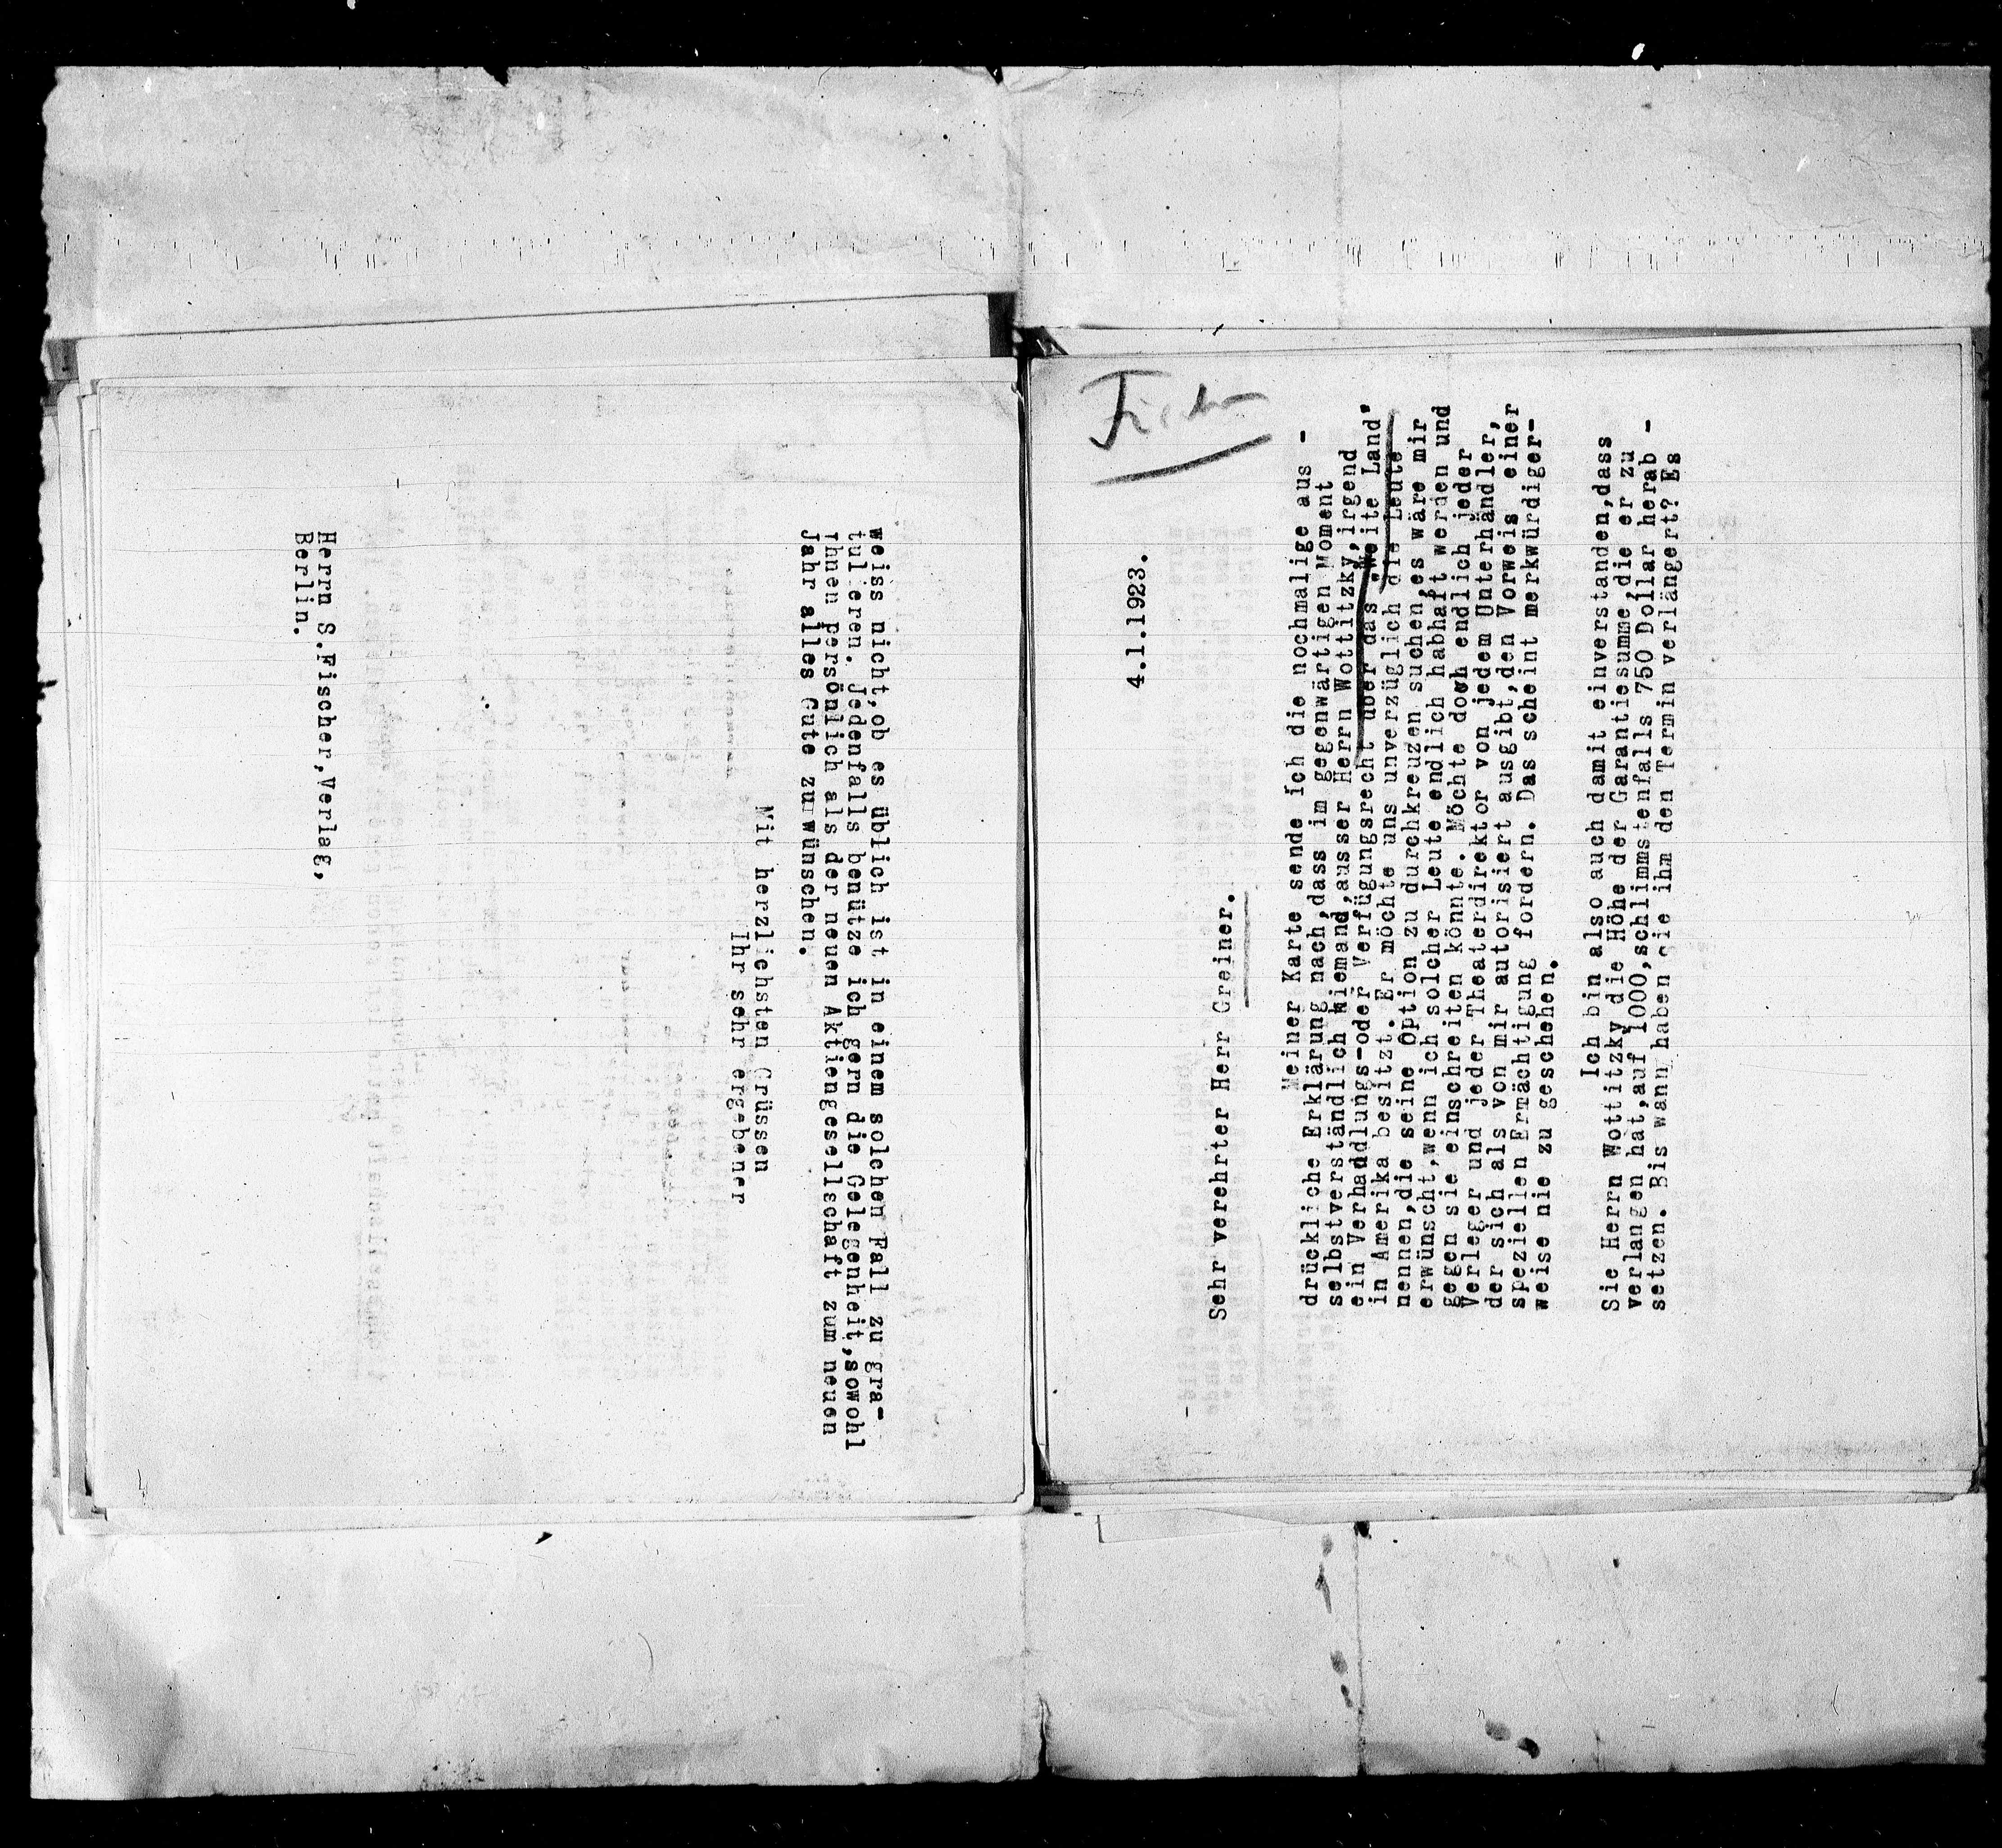 Fischer
4.1.1923.
Sehr verehrter Herr Greiner.
Meiner Karte sende ich die nochmalige aus -
drückliche Erklärung nach,dass im gegenwärtigen Moment
selbstverständlich Niemand,ausser Herrn Wottitzky,irgend
ein Verhandlungs-oder Verfügungsrecht über das "Weite Land"
in Amerika besitzt. Er möchte uns unverzüglich die Leute
nennen,die seine Option zu durchkreuzen suchen,es wäre mir
erwünscht,wenn ich solcher Leute endlich habhaft werden und
gegen sie einschreiten könnte. Möchte doch endlich jeder
Verleger und jeder Theaterdirektor von jedem Unterhändler,
der sich als von mir autorisiert ausgibt,den Vorweis einer
speziellen Ermächtigung fordern. Das scheint merkwürdiger-
weise nie zu geschehen.
Ich bin also auch damit einverstanden,dass
Sie Herrn Wottitzky die Höhe der Garantiesumme,die er zu
verlangen hat,auf 1000,schlimmstenfalls 750 Dollar herab -
setzen. Bis wann haben Sie ihm den Termin verlängert? Es
weiss nicht,ob es üblich ist in einem solchen Fall zu gra-
tulieren. Jedenfalls benütze ich gern die Gelegenheit,sowohl
Ihnen persönlich als der neuen Aktiengesellschaft zum neuen
Jahr alles Gute zu wünschen.
Mit herzlichsten Grüssen
Ihr sehr ergebener
Herrn S.Fischer,Verlag,
Berlin.